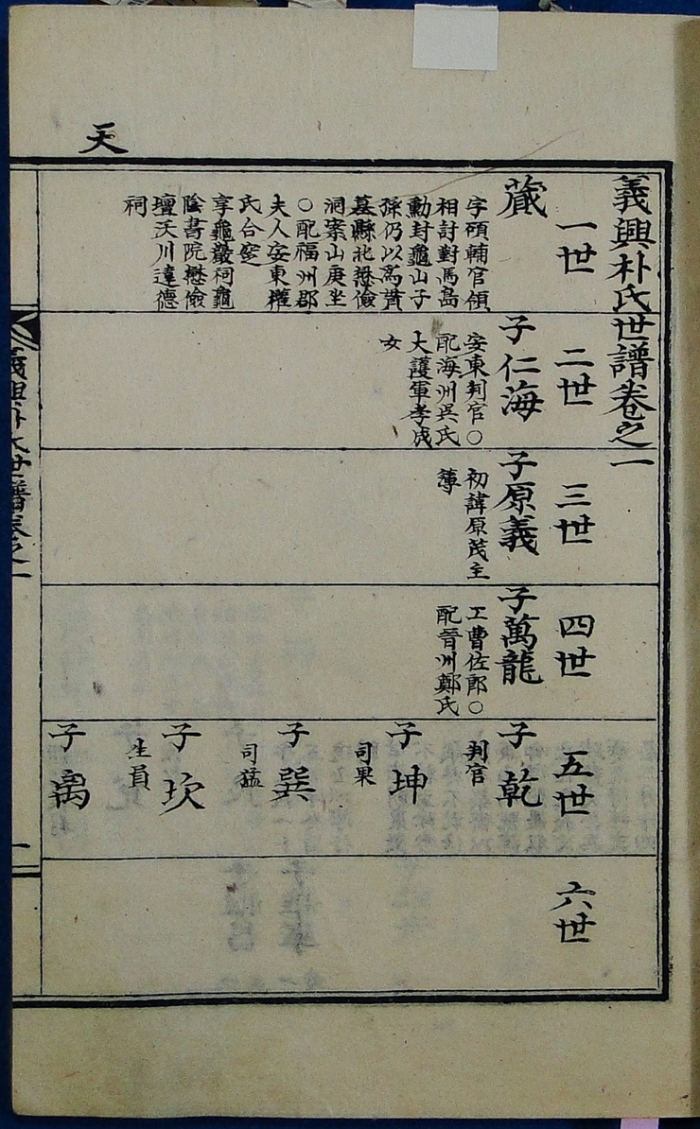 天
義興朴氏世譜卷之一
一世
藏
字碩輔官領
相討對馬島
勳封龜山子
孫仍以爲貫
墓縣北懋儉
洞案山庚坐
○配福州郡
夫人安東權
氏合窆
享龜巖祠龜
陰書院懋儉
壇沃川達德
祠
二世
子仁海
安東判官○
配海州吳氏
大護軍孝成
女
三世
子原義
初諱原茂主
簿
四世
子萬龍
工曹佐郎○
配晉州鄭氏
五世
子乾
判官
子坤
司果
子巽
司猛
子坎
生員
子禼
六世
義興朴氏世譜卷之一
一